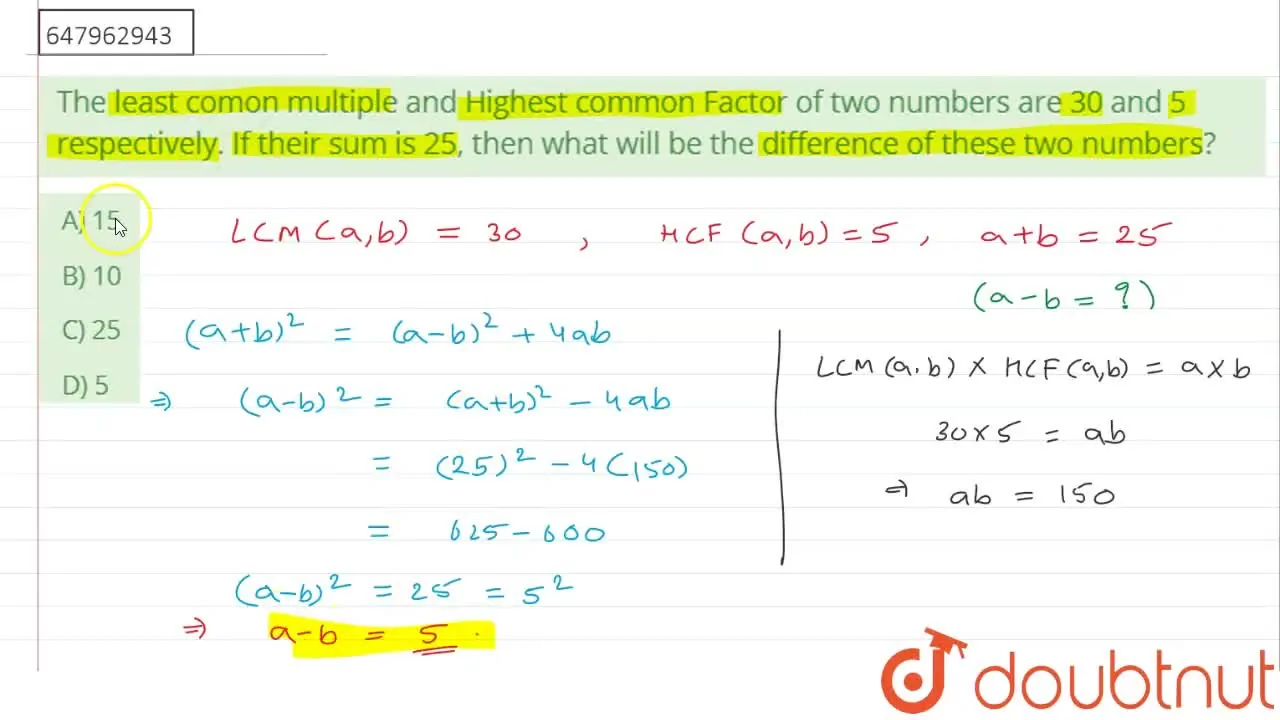 647962943
The least comon multiple and Highest common Factor of two numbers are 30 and 5
respectively. If their sum is 25, then what will be the difference of these two numbers?
A) 15
LCM (a,b) = 30 , HCF (a,b) = 5 , a+b = 25
B) 10
(a-b = ?)
C) 25
(a+b)² = (a-b)² + 4ab
LCM (a.b) × HCF (a,b) = a×b
D) 5
⇒ (a-b)² = (a+b)² - 4ab
30×5 = ab
= (25)² - 4(150)
⇒ ab = 150
= 625-600
(a-b)² = 25 = 5²
⇒ a-b = 5 .
doubtnut